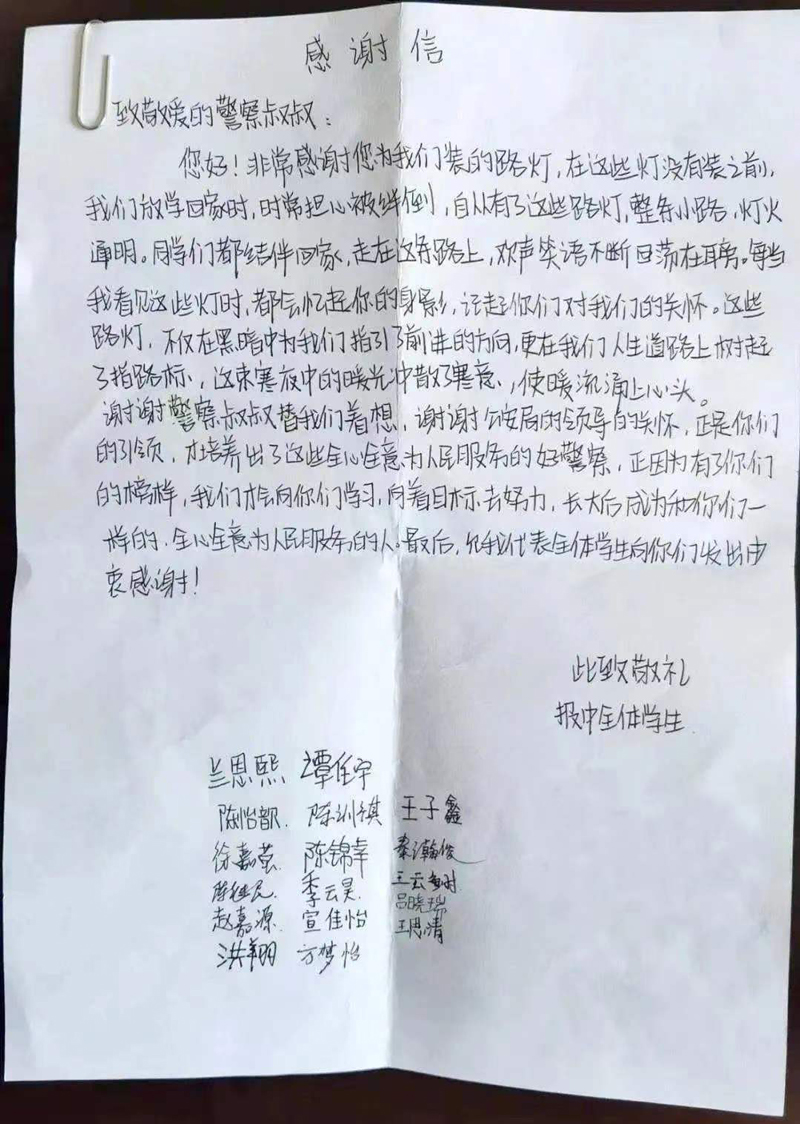 感谢信
致敬爱的警察叔叔:
您好!非常感谢您为我们装的路灯,在这些灯没有装之前,
我们放学回家时,时常担心被绊倒,自从有了这些路灯,整条小路,灯火
通明。同学们都结伴回家,走在这条路上,欢声笑语不断回荡在耳旁。每当
我看见这些灯时,都会忆起你的身影,记起你们对我们的关怀。这些
路灯,不仅在黑暗中为我们指引了前进的方向,更在我们人生道路上树起
了指路标,这束寒夜中的暖光冲散了寒意,使暖流涌上心头。
谢谢警察叔叔替我们着想,谢谢公安局的领导的关怀,正是你们
的引领,才培养出了这些全心全意为人民服务的好警察,正因为有了你们
的榜样,我们才会向你们学习,向着目标去努力,长大后成为和你们一
样的、全心全意为人民服务的人。最后,允我代表全体学生向你们发出由
衷感谢!
此致敬礼
报中全体学生
兰思熙 谭任宇
陈怡歆 陈训祺 王子鑫
徐嘉莹 陈锦幸 秦瀚俊
季云昊 王云
赵嘉源 宣佳怡 吕晓瑞
洪翔 方梦怡 王思清